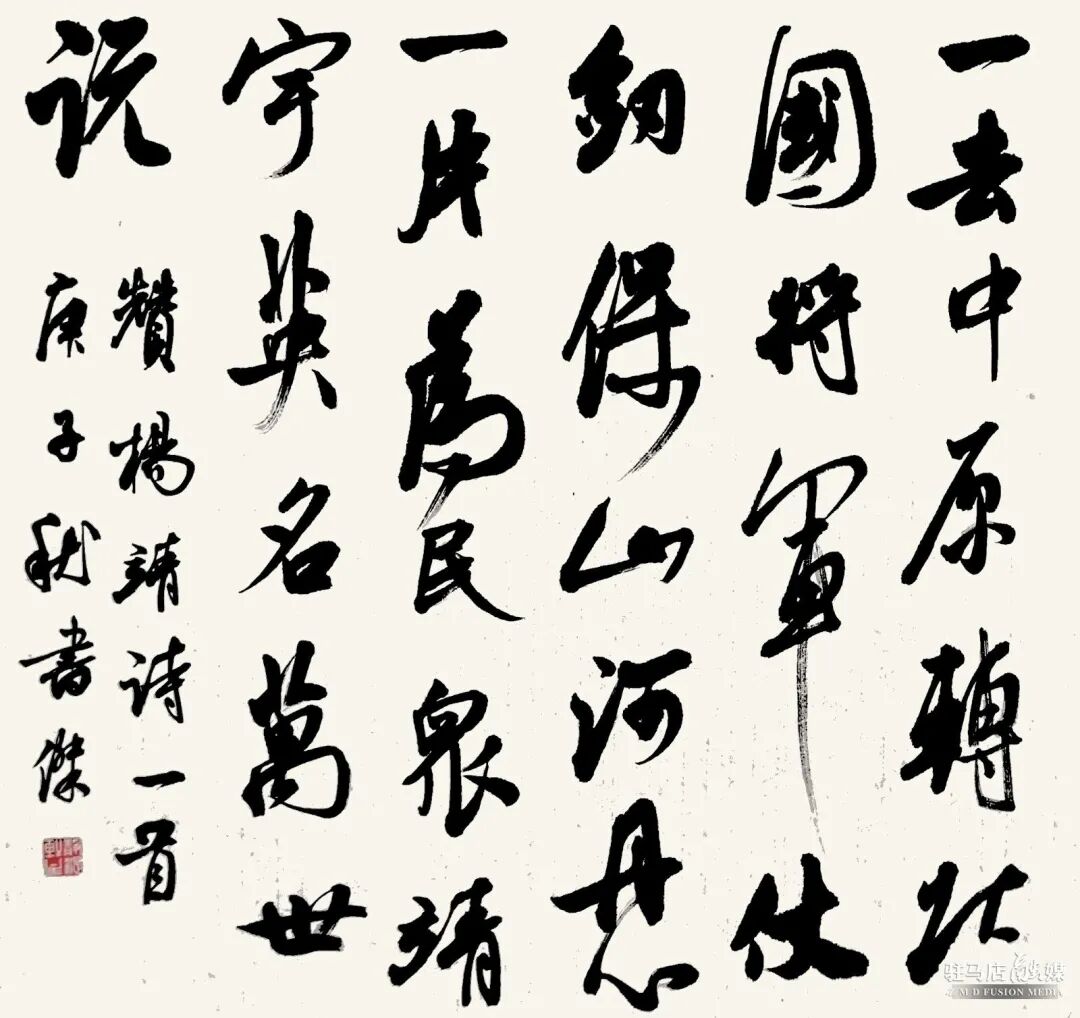 一去中原轉北
國將軍仗
劍保山河丹心
一片為民眾靖
宇英名萬世
説
贊楊靖詩一首
庚子秋書傑
驻马店融媒
ZMD FUSION MEDIA